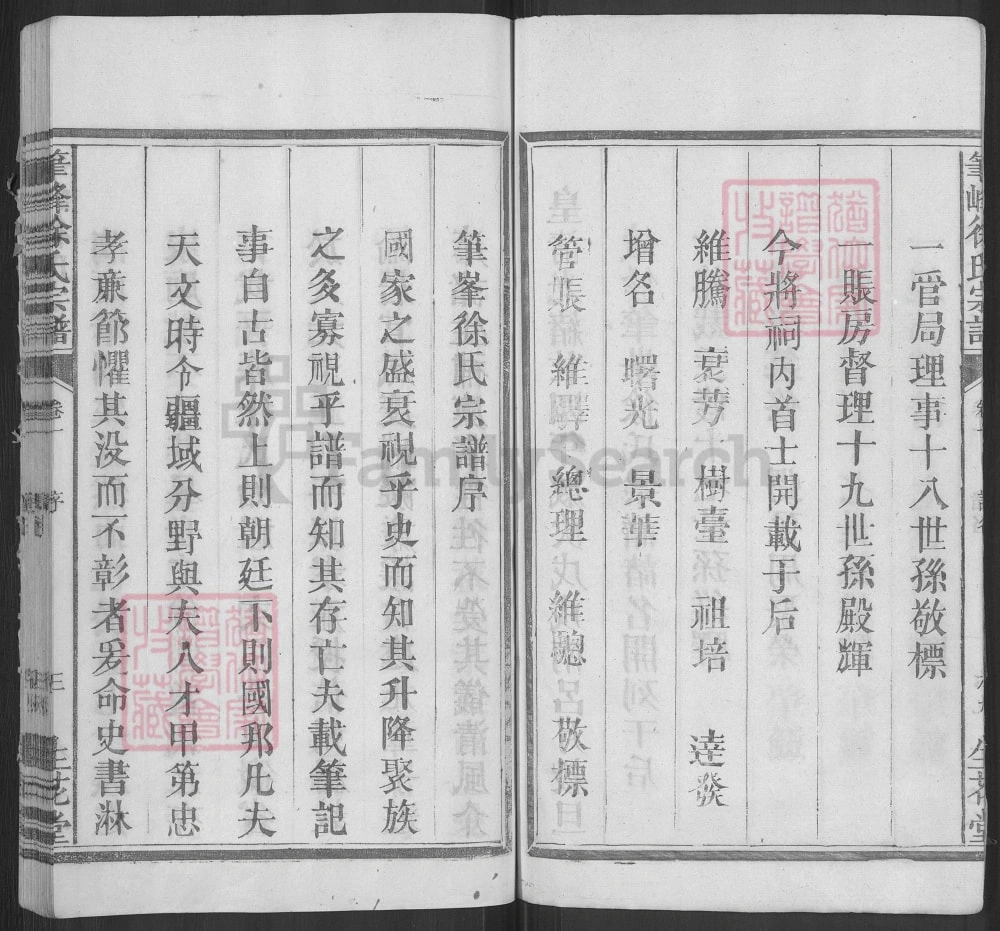 一管局理事十八世孫敬標
一賬房督理十九世孫殿輝
今將祠內首士開載于后
維騰 袞芳 樹臺 祖培 達發
增名 曙光 景華
管賬 維驛 總理 維聰 敬標
筆峯徐氏宗譜序
國家之盛衰視乎史而知其升降聚族
之多寡視乎譜而知其存亡夫載筆記
事自古皆然上則朝廷下則國邦凡夫
天文時令疆域分野與夫人才甲第忠
孝亷節懼其没而不彰者爰命史書淋
筆峰徐氏宗譜 卷一 序 三 生花堂
FamilySearch